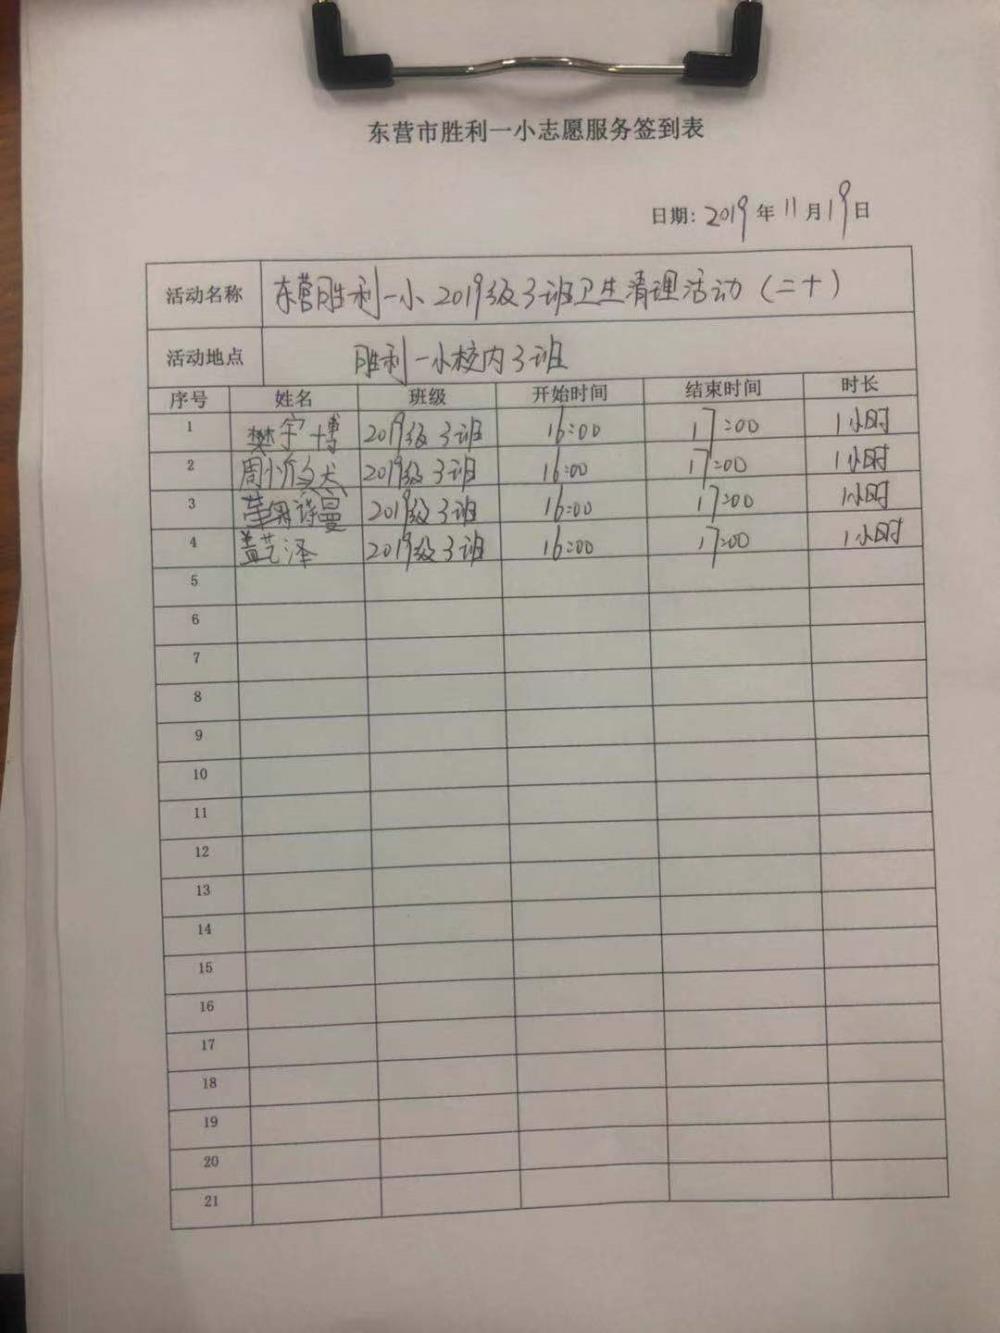 东营市胜利一小志愿服务签到表
日期: 2019 年 11 月 19 日
活动名称 东营胜利一小2019级3班卫生清理活动（二十）
活动地点 胜利一小校内3班
序号 姓名 班级 开始时间 结束时间 时长
1 樊宇博 2019级3班 16:00 17:00 1小时
2 2019级3班 16:00 17:00 1小时
3 2019级3班 16:00 17:00 1小时
4 盖艺泽 2019级3班 16:00 17:00 1小时
5
6
7
8
9
10
11
12
13
14
15
16
17
18
19
20
21